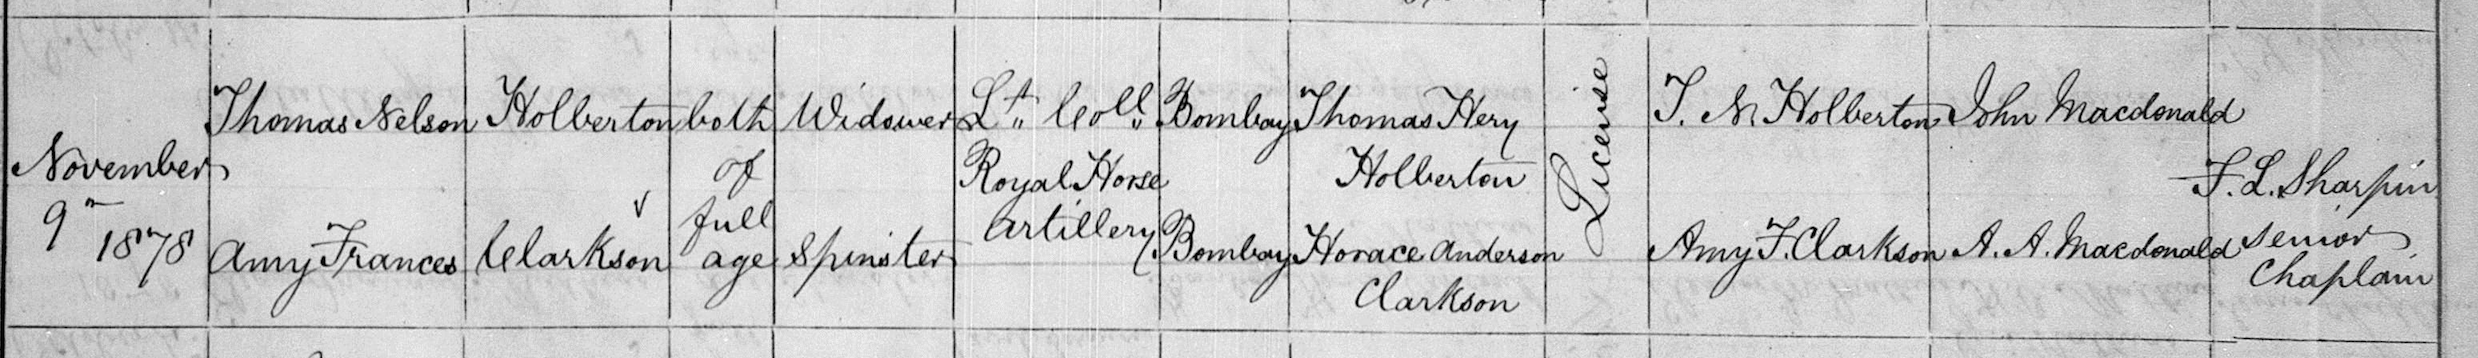 November
9th
1878
Thomas Nelson
Amy Frances
Holberton
Clarkson
both
of
full
age
Widower
Spinster
Lt. Coll.
Royal Horse
Artillery
Bombay
Bombay
Thomas Hery
Holberton
Horace Anderson
Clarkson
License
T. N. Holberton
Amy F. Clarkson
John Macdonald
A. A. Macdonald
F. L. Sharpin
Senior
Chaplain